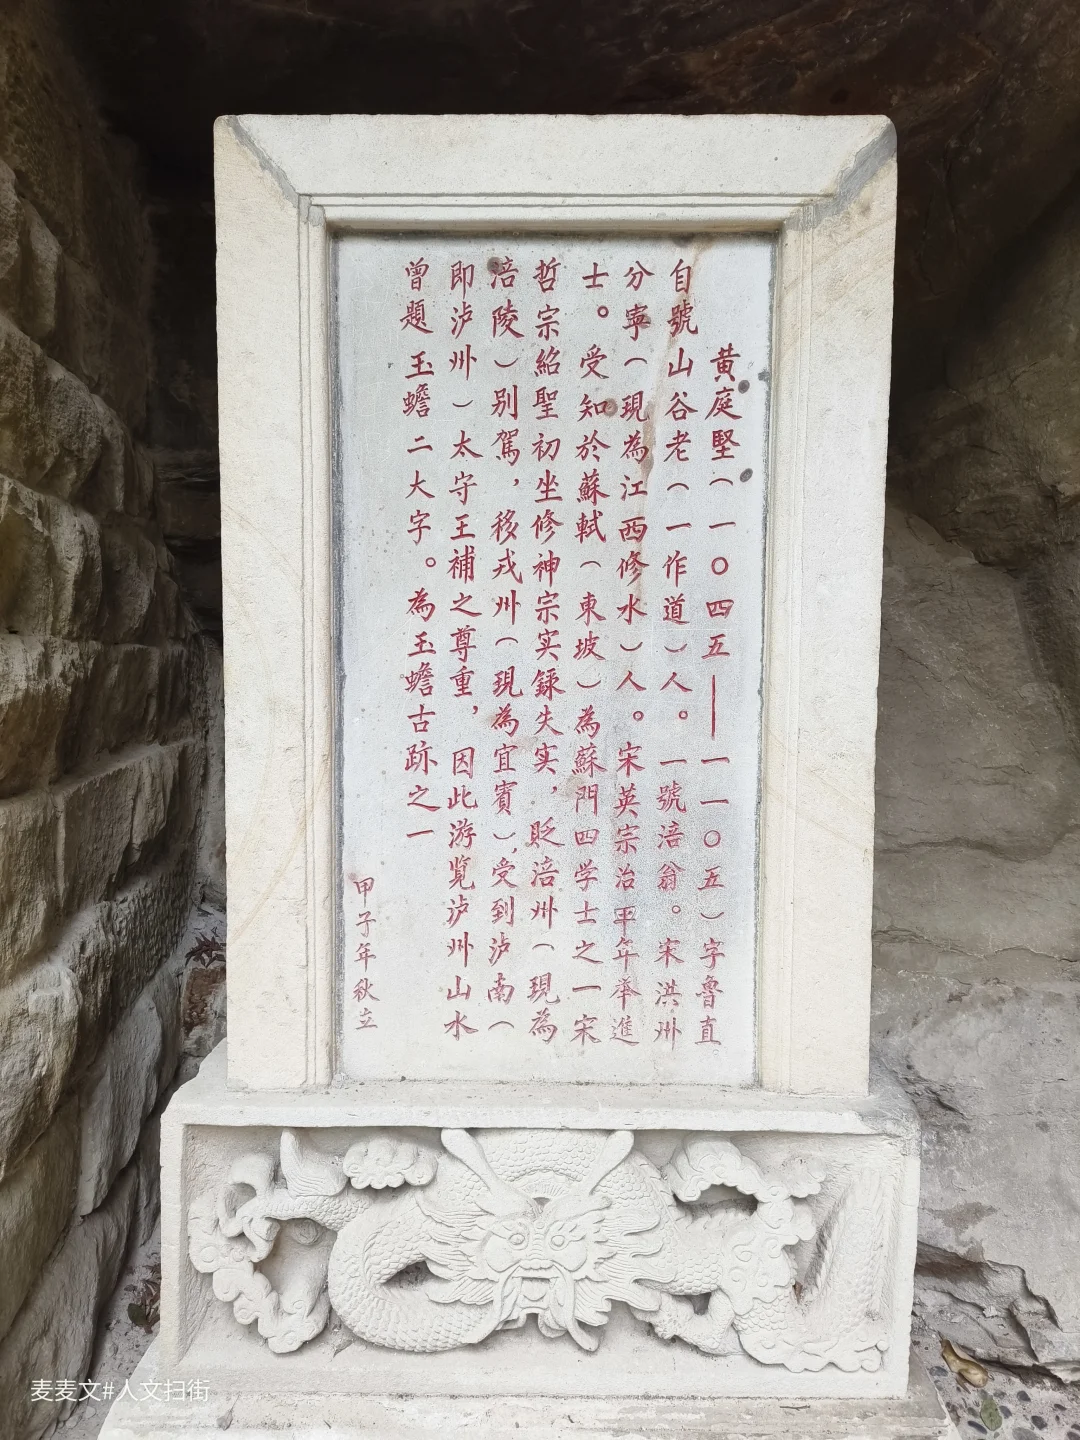 黄庭堅（一〇四五——一一〇五）字魯直
自號山谷老（一作道）人。一號涪翁。宋洪州
分寧（現為江西修水）人。宋英宗治平年举進
士。受知於蘇軾（東坡）為蘇門四学士之一宋
哲宗紹聖初坐修神宗实録失实，貶涪州（現為
涪陵）别駕，移戎州（現為宜賓），受到泸南（
即泸州）太守王補之尊重，因此游览泸州山水
曾題玉蟾二大字。為玉蟾古跡之一
甲子年秋立
麦麦文#人文扫街